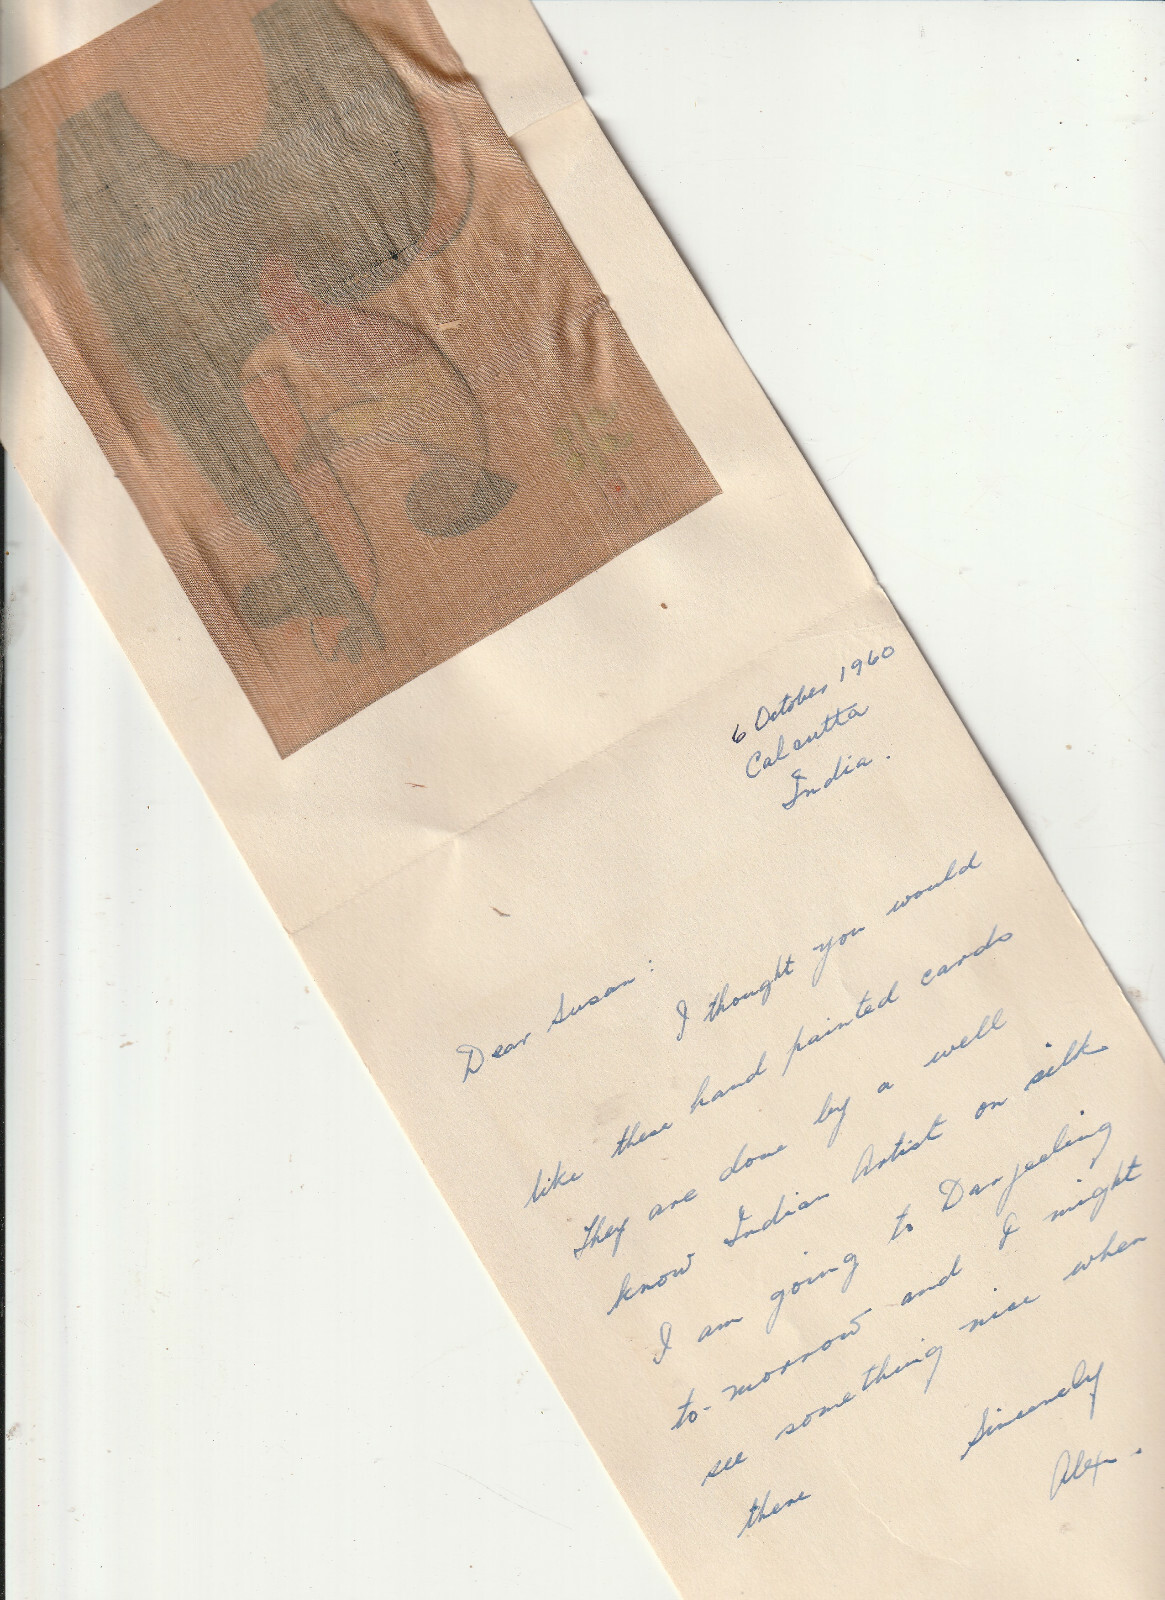 6 October 1960
Calcutta
India.
Dear Susan:
I thought you would
like these hand painted cards
They are done by a well
know Indian Artist on silk
I am going to Darjeeling
to-morrow and I might
see something nice when
there
Sincerely
Alex.